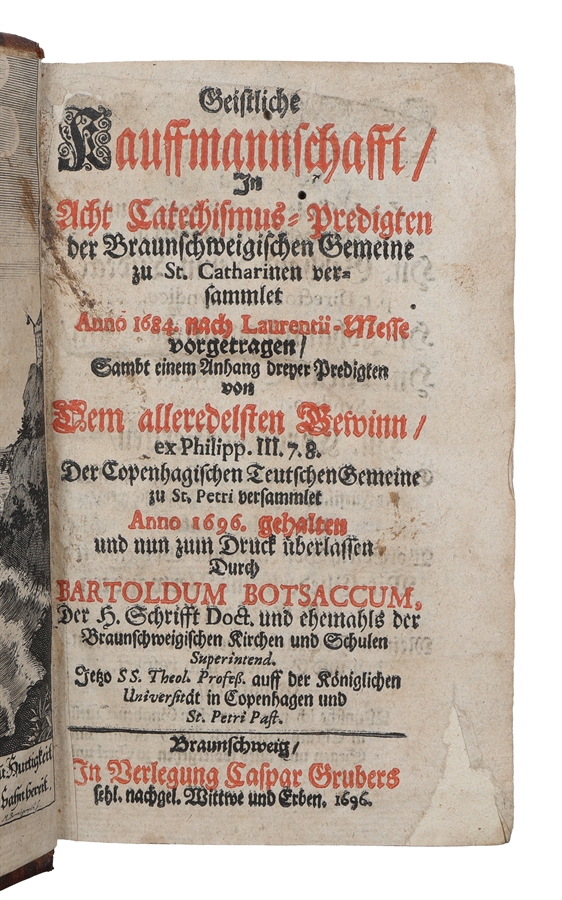 Geistliche
Kauffmannschafft /
In
Acht Catechismus-Predigten
der Braunschweigischen Gemeine
zu St. Catharinen ver-
sammlet
Anno 1684. nach Laurentii-Messe
vorgetragen /
Sambt einem Anhang dreyer Predigten
von
Dem alleredelsten Gewinn /
ex Philipp. III. 7. 8.
Der Copenhagischen Teutschen Gemeine
zu St. Petri versammlet
Anno 1696. gehalten
und nun zum Druck überlassen
Durch
BARTOLDUM BOTSACCUM,
Der H. Schrifft Doct. und ehemahls der
Braunschweigischen Kirchen und Schulen
Superintend.
Jetzo SS. Theol. Profeß. auff der Königlichen
Universität in Copenhagen und
St. Petri Past.
Braunschweig /
In Verlegung Caspar Grubers
sehl. nachgel. Wittwe und Erben. 1696.
Hurtigkeit
bereit.